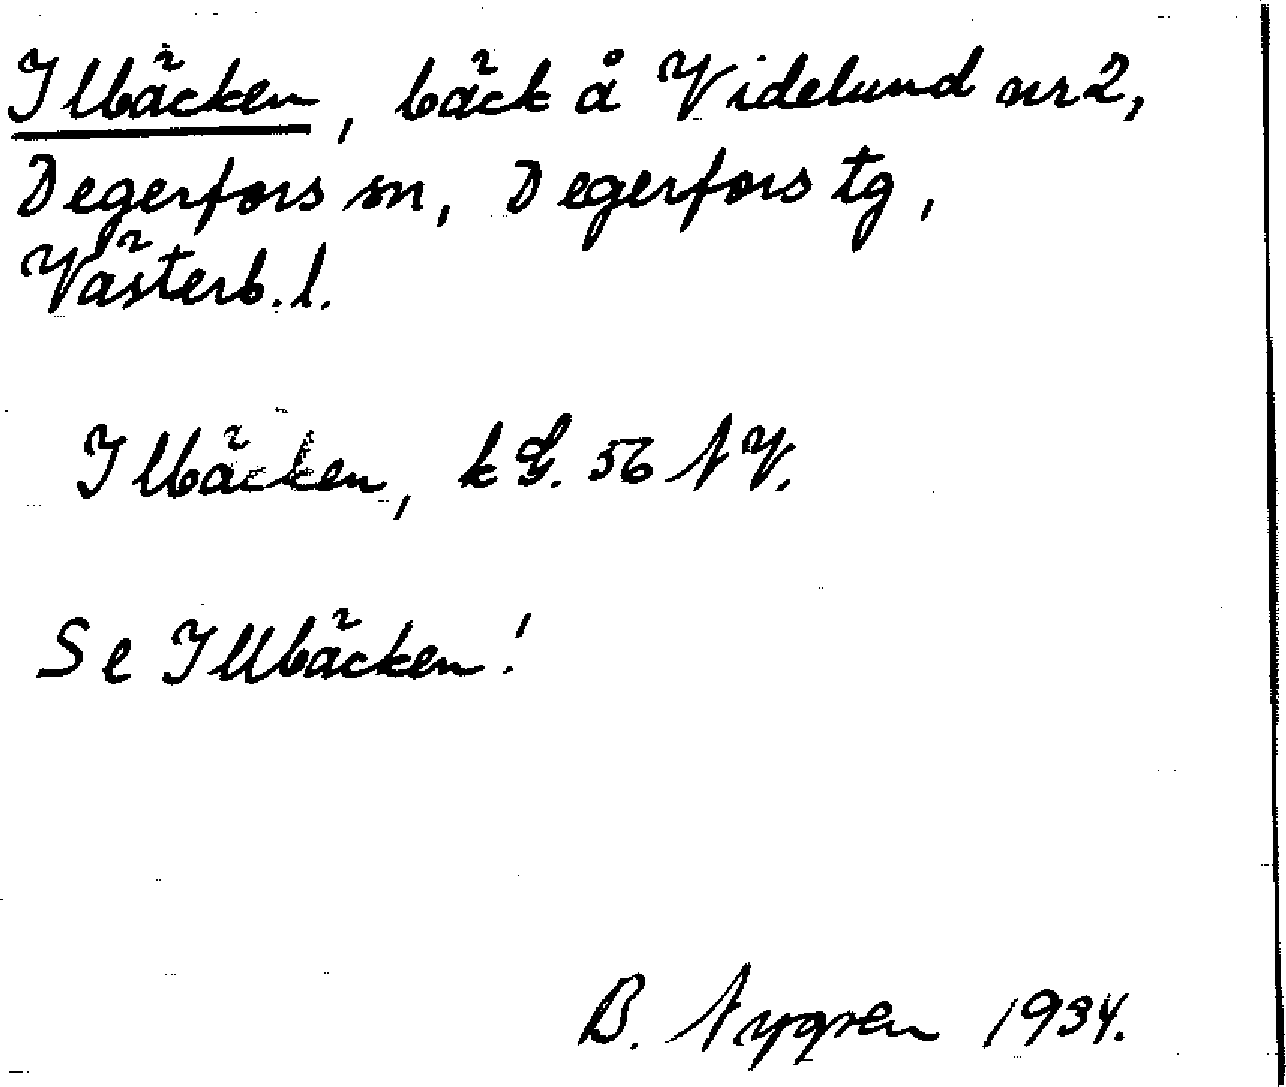 Ilbäcken, bäck å Videlund nr 2,
Degerfors sn, Degerfors tg,
Västerb. l.
Ilbäcken, k G. 56 NV.
Se Illbäcken!
B. Nygren 1934.